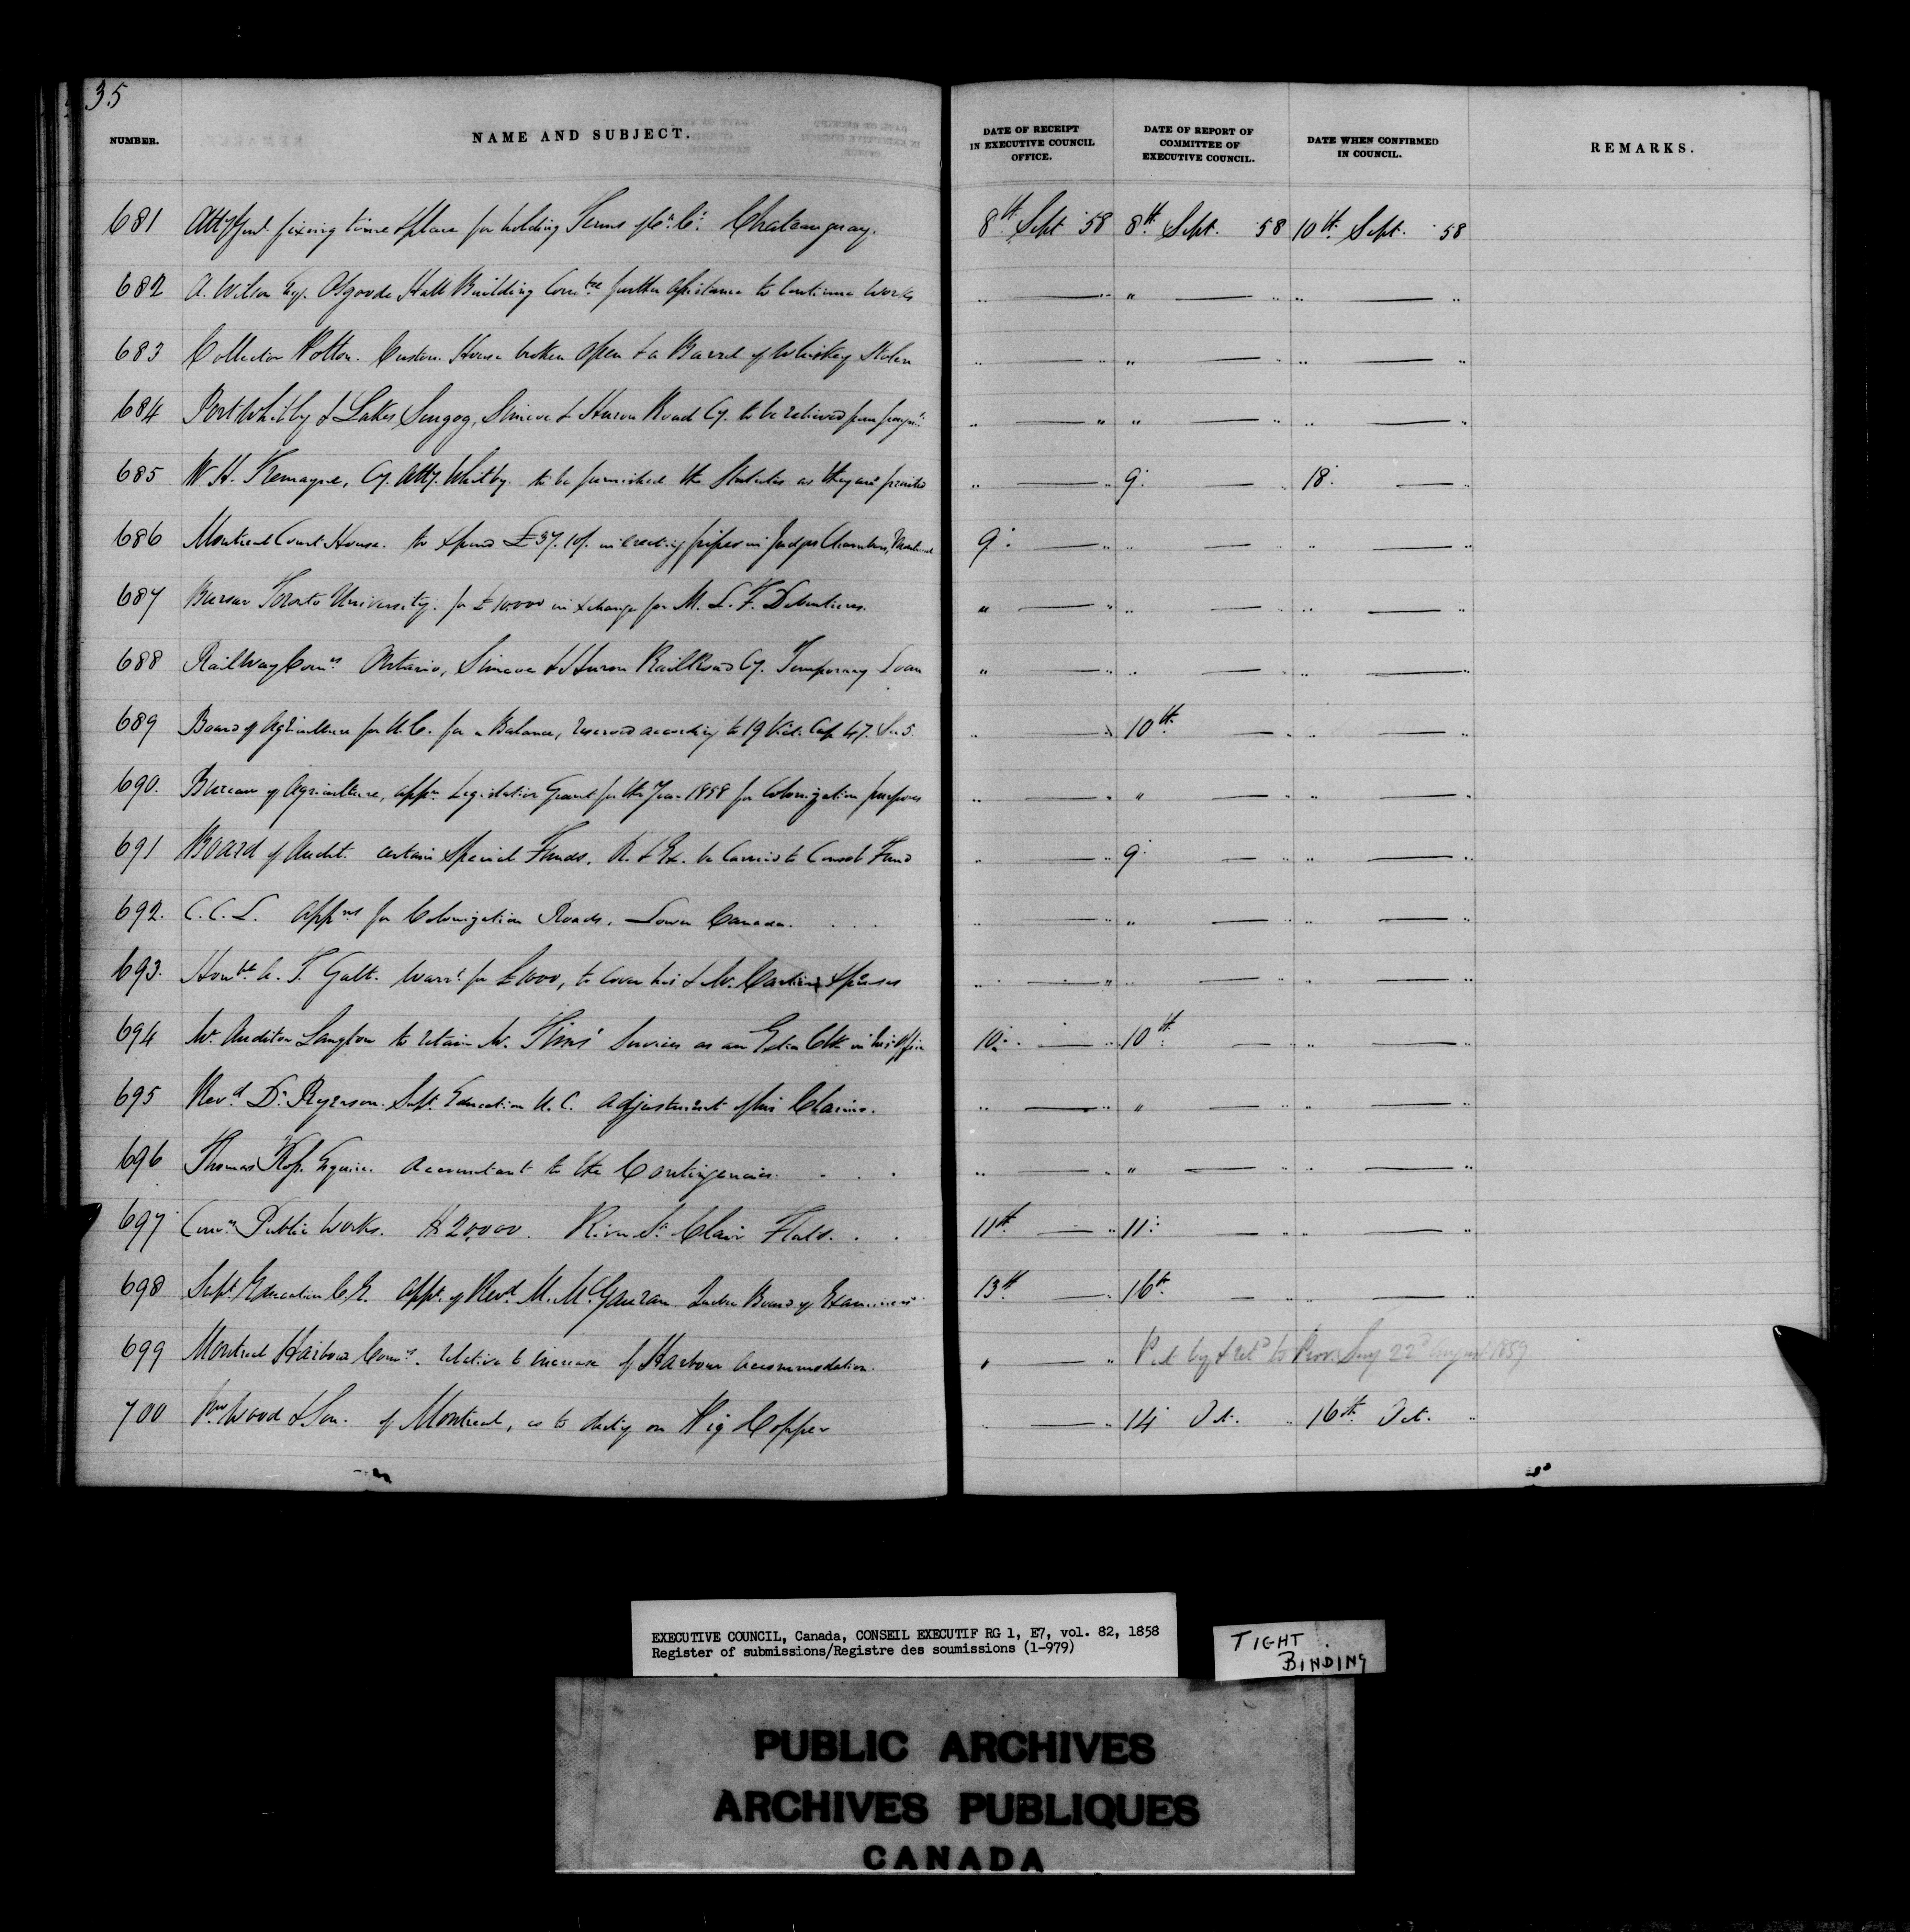 35
NUMBER. NAME AND SUBJECT. DATE OF RECEIPT IN EXECUTIVE COUNCIL OFFICE. DATE OF REPORT OF COMMITTEE OF EXECUTIVE COUNCIL. DATE WHEN CONFIRMED IN COUNCIL. REMARKS.
681 Atty Genl fixing time & place for holding Terms of Ct. Ct. Chateauguay. 8th Sept 58 8th Sept. 58 10th Sept. 58
682 A. Wilson Esq. Osgoode Hall Building Comtee further assistance to continue works " — " " — " " — "
683 Collector Potton. Custom House broken open & a Barrel of Whiskey Stolen " — " " — " " — "
684 Port Whitby & Lakes Scugog, Simcoe & Huron Road Cy. to be relieved from paymt " — " " — " " — "
685 W. H. Tremayne, Cy. Atty. Whitby. to be furnished the Statutes as they are printed " — " 9: — " 18: — "
686 Montreal Court House. to expend £37.10/. in erecting pipes in Judges Chambers, Montreal 9: — " " — " " — "
687 Bursar Toronto University. for £10,000 in exchange for M. L. F. Debentures. " — " " — " " — "
688 Railway Comrs Ontario, Simcoe & Huron RailRoad Cy. Temporary Loan " — " " — " " — "
689 Board of Agriculture for U.C. for a Balance, reserved according to 19 Vict. Cap 47. Sec 5. " — " 10th — " " — "
690. Bureau of Agriculture, appn Legislative Grant for the Year 1858 for Colonization purposes " — " " — " " — "
691 Board of Audit. certain Special Funds, R. & Ex. be carried to Consol. Fund " — " 9: — " " — "
692. C.C.L. Appns for Colonization Roads, Lower Canada. . . . " — " " — " " — "
693. Honble A. T. Galt. Warrt for £1000, to cover his & Mr. Cartier's expenses " — " " — " " — "
694 Mr. Auditor Langton to retain Mr. Tims' Services as an Extra Clk in his Office 10: — " 10th — " " — "
695 Revd Dr. Ryerson. Supt. Education U.C. adjustment of his Claims. " — " " — " " — "
696 Thomas Ross Esquire. Accountant to the Contingencies. . . . " — " " — " " — "
697 Comrs Public Works. $20,000. River St. Clair Flats. . . 11th — " 11: — " " — "
698 Supt. Education C.E. Appt. of Revd. M. McGauran. Quebec Board of Examiners 13th — " 16th — " " — "
699 Montreal Harbour Comrs. relative to increase of Harbour Accommodation. " — " by & retd to Prov. Secy 22d August 1859
700 Wm Wood & Son. of Montreal, as to duty on Pig Copper " — " 14 Oct. " 16th Oct. "
EXECUTIVE COUNCIL, Canada, CONSEIL EXECUTIF RG 1, E7, vol. 82, 1858
Register of submissions/Registre des soumissions (1-979)
TIGHT
BINDING
PUBLIC ARCHIVES
ARCHIVES PUBLIQUES
CANADA